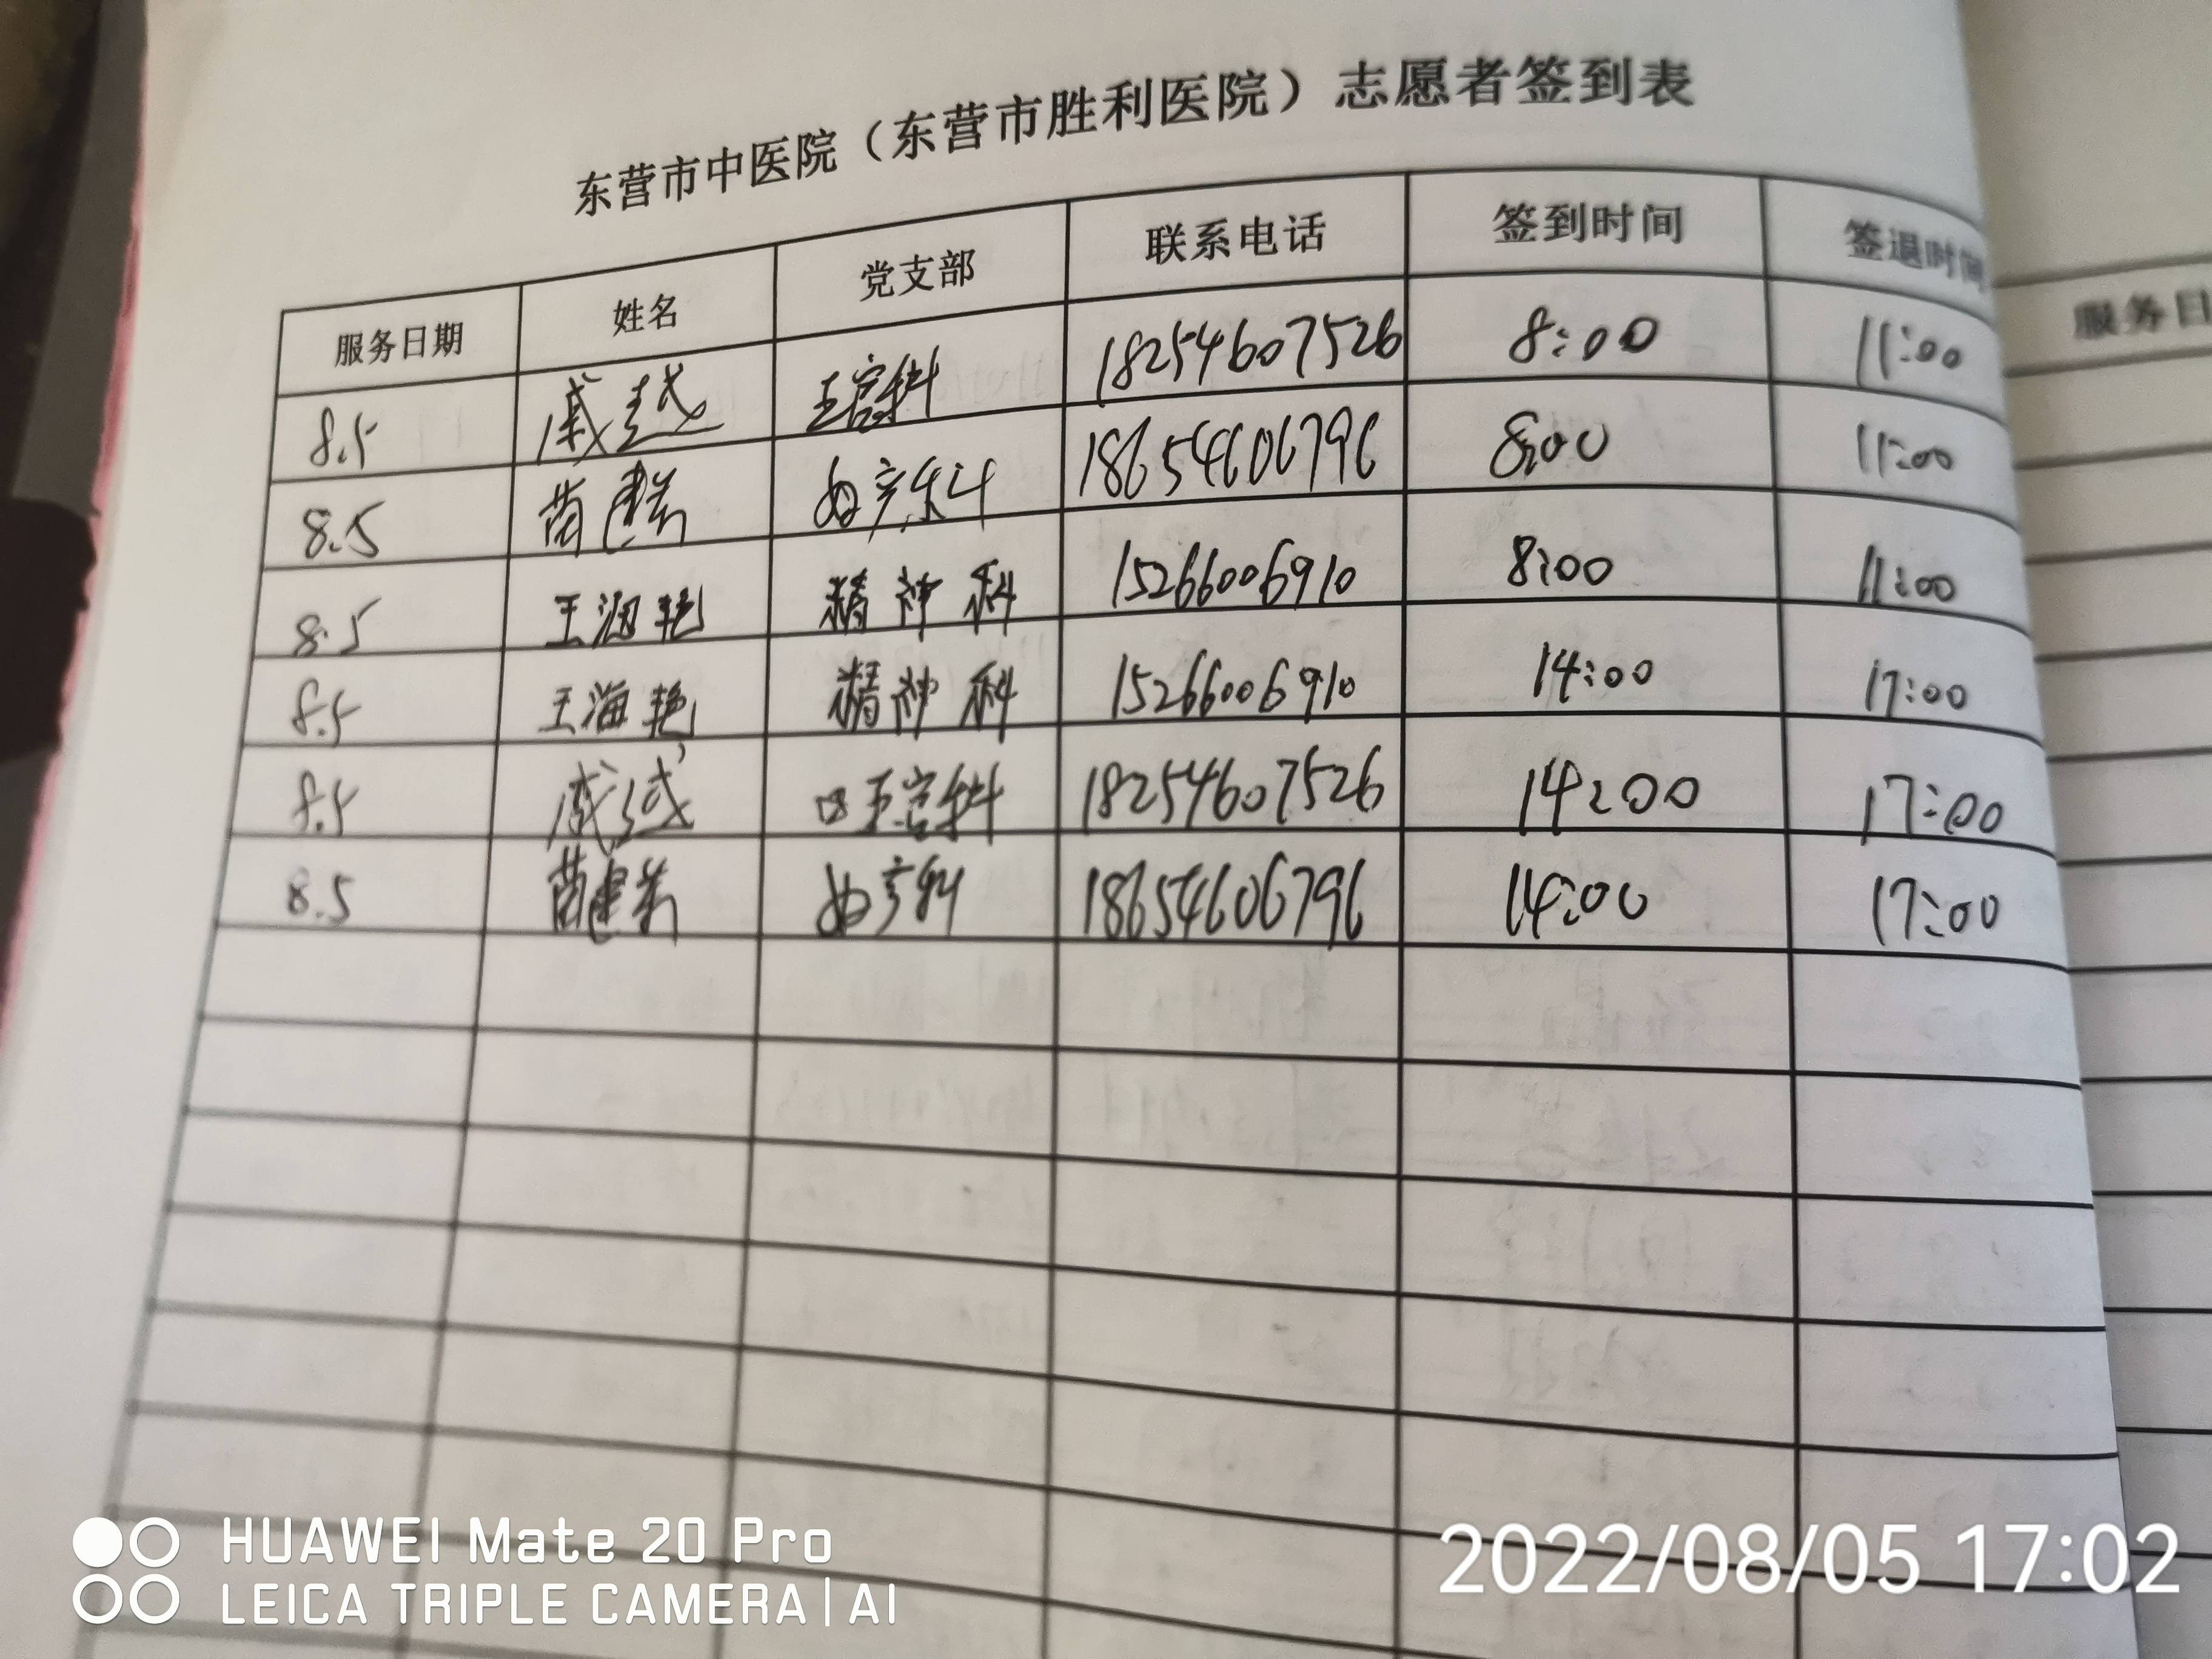 东营市中医院（东营市胜利医院）志愿者签到表
服务日期 姓名 党支部 联系电话 签到时间 签退时间
8.5 戚越 18254607526 8:00 11:00
8.5 18654606796 8:00 11:00
8.5 王海艳 精神科 15266006910 8:00 11:00
8.5 王海艳 精神科 15266006910 14:00 17:00
8.5 戚越 18254607526 14:00 17:00
8.5 18654606796 14:00 17:00
服务日
HUAWEI Mate 20 Pro
LEICA TRIPLE CAMERA | AI
2022/08/05 17:02